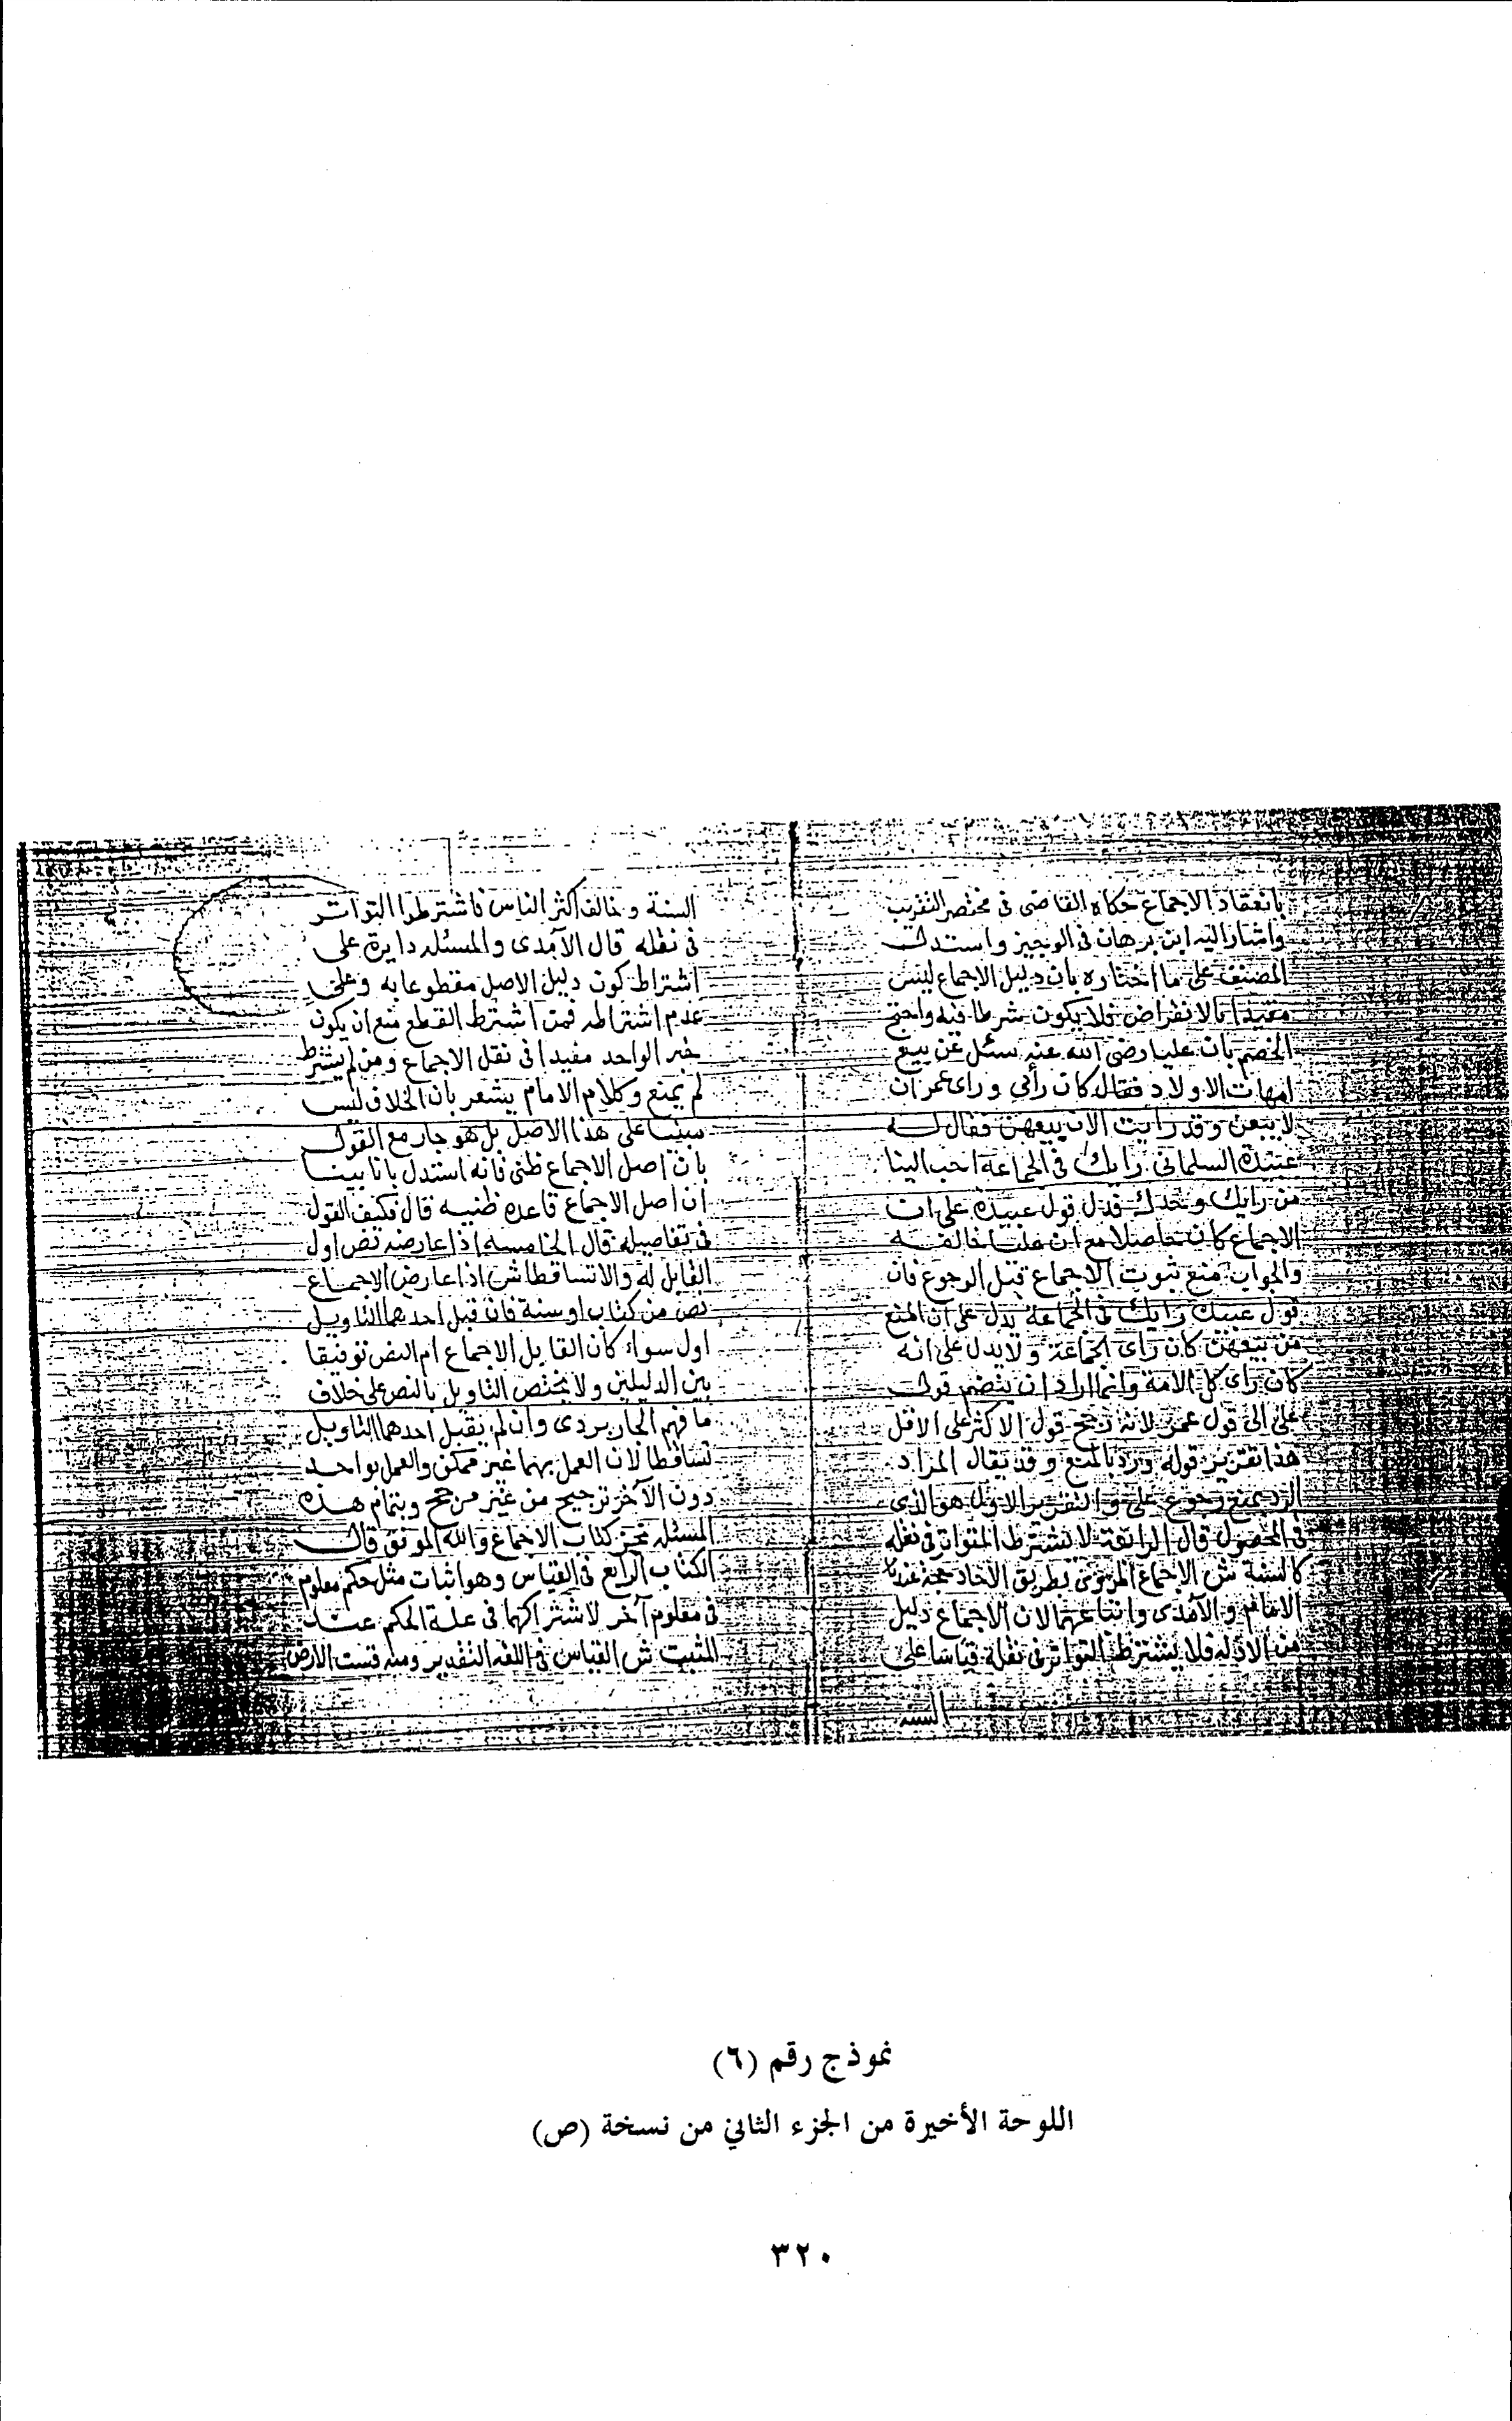 بانعقاد الاجماع حكاه القاضى فى مختصر التقريب
واشار اليه ابن برهان فى الوجيز واستدل
المصنف على ما اختاره بان دليل الاجماع ليس
مقيدا بالانقراض فلا يكون شرطا فيه واحتج
الخصم بان عليا رضى الله عنه سئل عن بيع
امهات الاولاد فقال كان رأيي وراى عمر ان
لا يبعن وقد رأيت الان بيعهن فقال له
عبيدة السلمانى رايك فى الجماعة احب الينا
من رايك وحدك فدل قول عبيدة على ان
الاجماع كان حاصلا مع ان عليا خالفه
والجواب منع ثبوت الاجماع قبل الرجوع فان
قول عبيدة رايك فى الجماعة يدل على ان المنع
من بيعهن كان راى الجماعة ولا يدل على انه
كان راى كل الامة وانما اراد ان ينضم قول
على الى قول عمر لانه رجح قول الاكثر على الاقل
هذا تقرير قوله ورد بالمنع وقد يقال المراد
الرد بمنع رجوع على والتقرير الاول هو الذى
فى المحصول قال الرابعة لا يشترط التواتر فى نقله
كالسنة ش الاجماع المروى بطريق الاحاد حجة عند
الامام والآمدى واتباعهما لان الاجماع دليل
من الادله فلا يشترط التواتر فى نقله قياسا على
السنه
السنة وخالف اكثر الناس فاشترطوا التواتر
فى نقله قال الآمدى والمسئله دايرة على
اشتراط كون دليل الاصل مقطوعا به وعلى
عدم اشتراطه فمن اشترط القطع منع ان يكون
خبر الواحد مفيدا فى نقل الاجماع ومن لم يشترط
لم يمنع وكلام الامام يشعر بان الخلاف ليس
مبنيا على هذا الاصل بل هو جار مع القول
بان اصل الاجماع ظنى فانه استدل بانا بينا
ان اصل الاجماع قاعدة ظنيه قال فكيف القول
فى تفاصيله قال الخامسه اذا عارضه نص اول
القابل له والا تساقطا ش اذا عارض الاجماع
نص من كتاب او سنة فان قبل احدهما التاويل
اول سواء كان القابل الاجماع ام النص توفيقا
بين الدليلين ولا يختص التاويل بالنص على خلاف
ما فهم الجاربردى وان لم يقبل احدهما التاويل
تساقطا لان العمل بهما غير ممكن والعمل بواحد
دون الآخر ترجيح من غير مرجح وبتمام هذه
المسئله نجز كتاب الاجماع والله الموفق قال
الكتاب الرابع فى القياس وهو اثبات مثل حكم معلوم
فى معلوم آخر لاشتراكهما فى علة الحكم عند
المثبت ش القياس فى اللغه التقدير ومنه قست الارض
نموذج رقم (٦)
اللوحة الأخيرة من الجزء الثاني من نسخة (ص)
٣٢٠